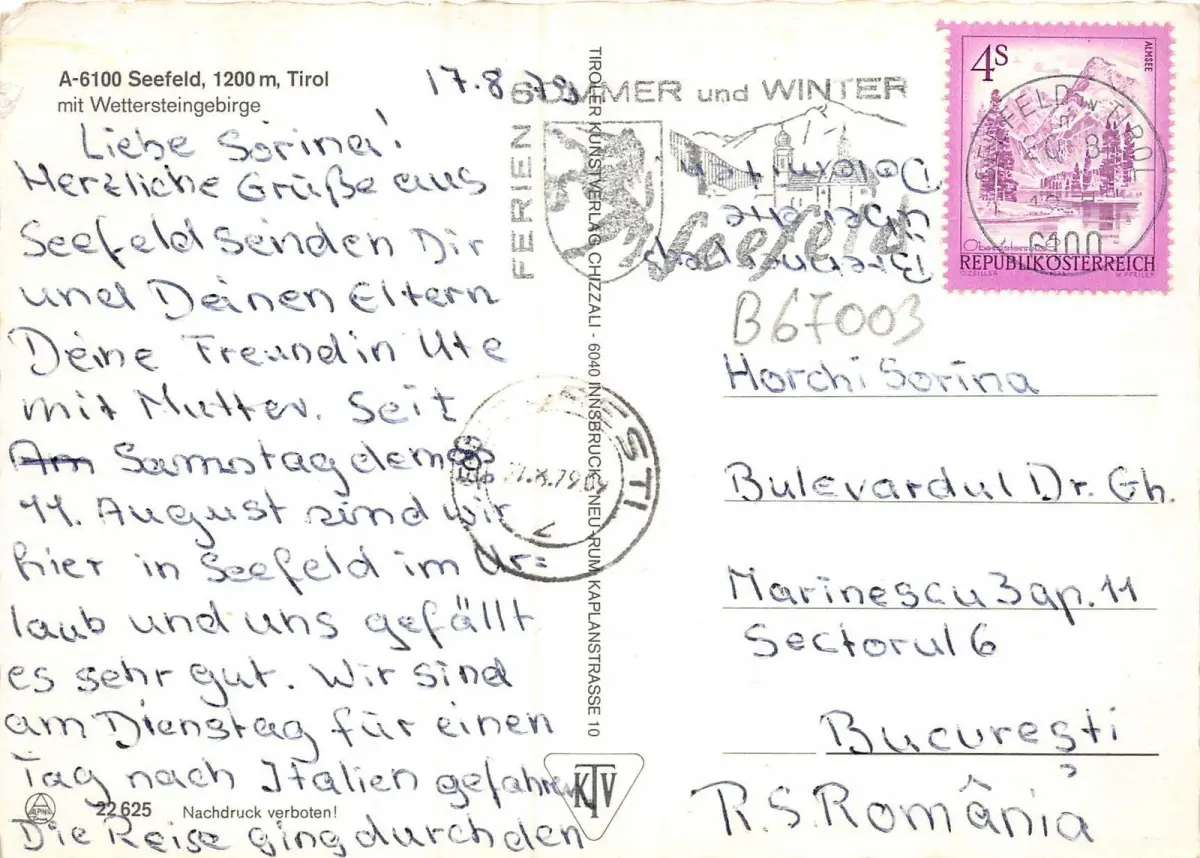 A-6100 Seefeld, 1200 m, Tirol
mit Wettersteingebirge
17.8.79
Liebe Sorina!
Herzliche Grüße aus
Seefeld senden Dir
und Deinen Eltern
Deine Freundin Ute
mit Mutter. Seit
Am Samstag dem
11. August sind wir
hier in Seefeld im Ur=
laub und uns gefällt
es sehr gut. Wir sind
am Dienstag für einen
Tag nach Italien gefahren
Die Reise ging durch den
Brennerpaß
über die
Dolomiten
22625 Nachdruck verboten!
ALPINA
TIROLER KUNSTVERLAG CHIZZALI - 6040 INNSBRUCK-NEU-RUM KAPLANSTRASSE 10
KTV
FERIEN
SOMMER und WINTER
Seefeld
4S
ALMSEE
Oberösterreich
REPUBLIK ÖSTERREICH
O. ZEILLER W. PFEILER
SEEFELD IN TIROL
6100
B67003
Horchi Sorina
Bulevardul Dr. Gh.
Marinescu 3 ap. 11
Sectorul 6
București
R.S. România